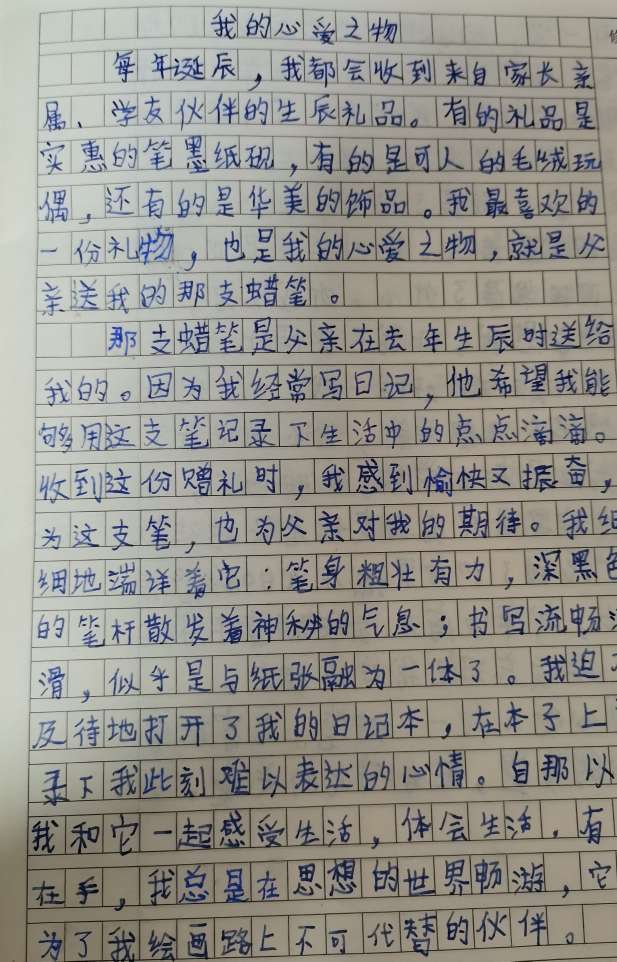 我的心爱之物
每年诞辰，我都会收到来自家长亲
属、学友伙伴的生辰礼品。有的礼品是
实惠的笔墨纸砚，有的是可人的毛绒玩
偶，还有的是华美的饰品。我最喜欢的
一份礼物，也是我的心爱之物，就是父
亲送我的那支蜡笔。
那支蜡笔是父亲在去年生辰时送给
我的。因为我经常写日记，他希望我能
够用这支笔记录下生活中的点点滴滴。
收到这份赠礼时，我感到愉快又振奋，
为这支笔，也为父亲对我的期待。我细
细地端详着它：笔身粗壮有力，深黑色
的笔杆散发着神秘的气息；书写流畅
滑，似乎是与纸张融为一体了。我迫
及待地打开了我的日记本，在本子上
录下我此刻难以表达的心情。自那以
我和它一起感受生活，体会生活，有
在手，我总是在思想的世界畅游，它
为了我绘画路上不可代替的伙伴。